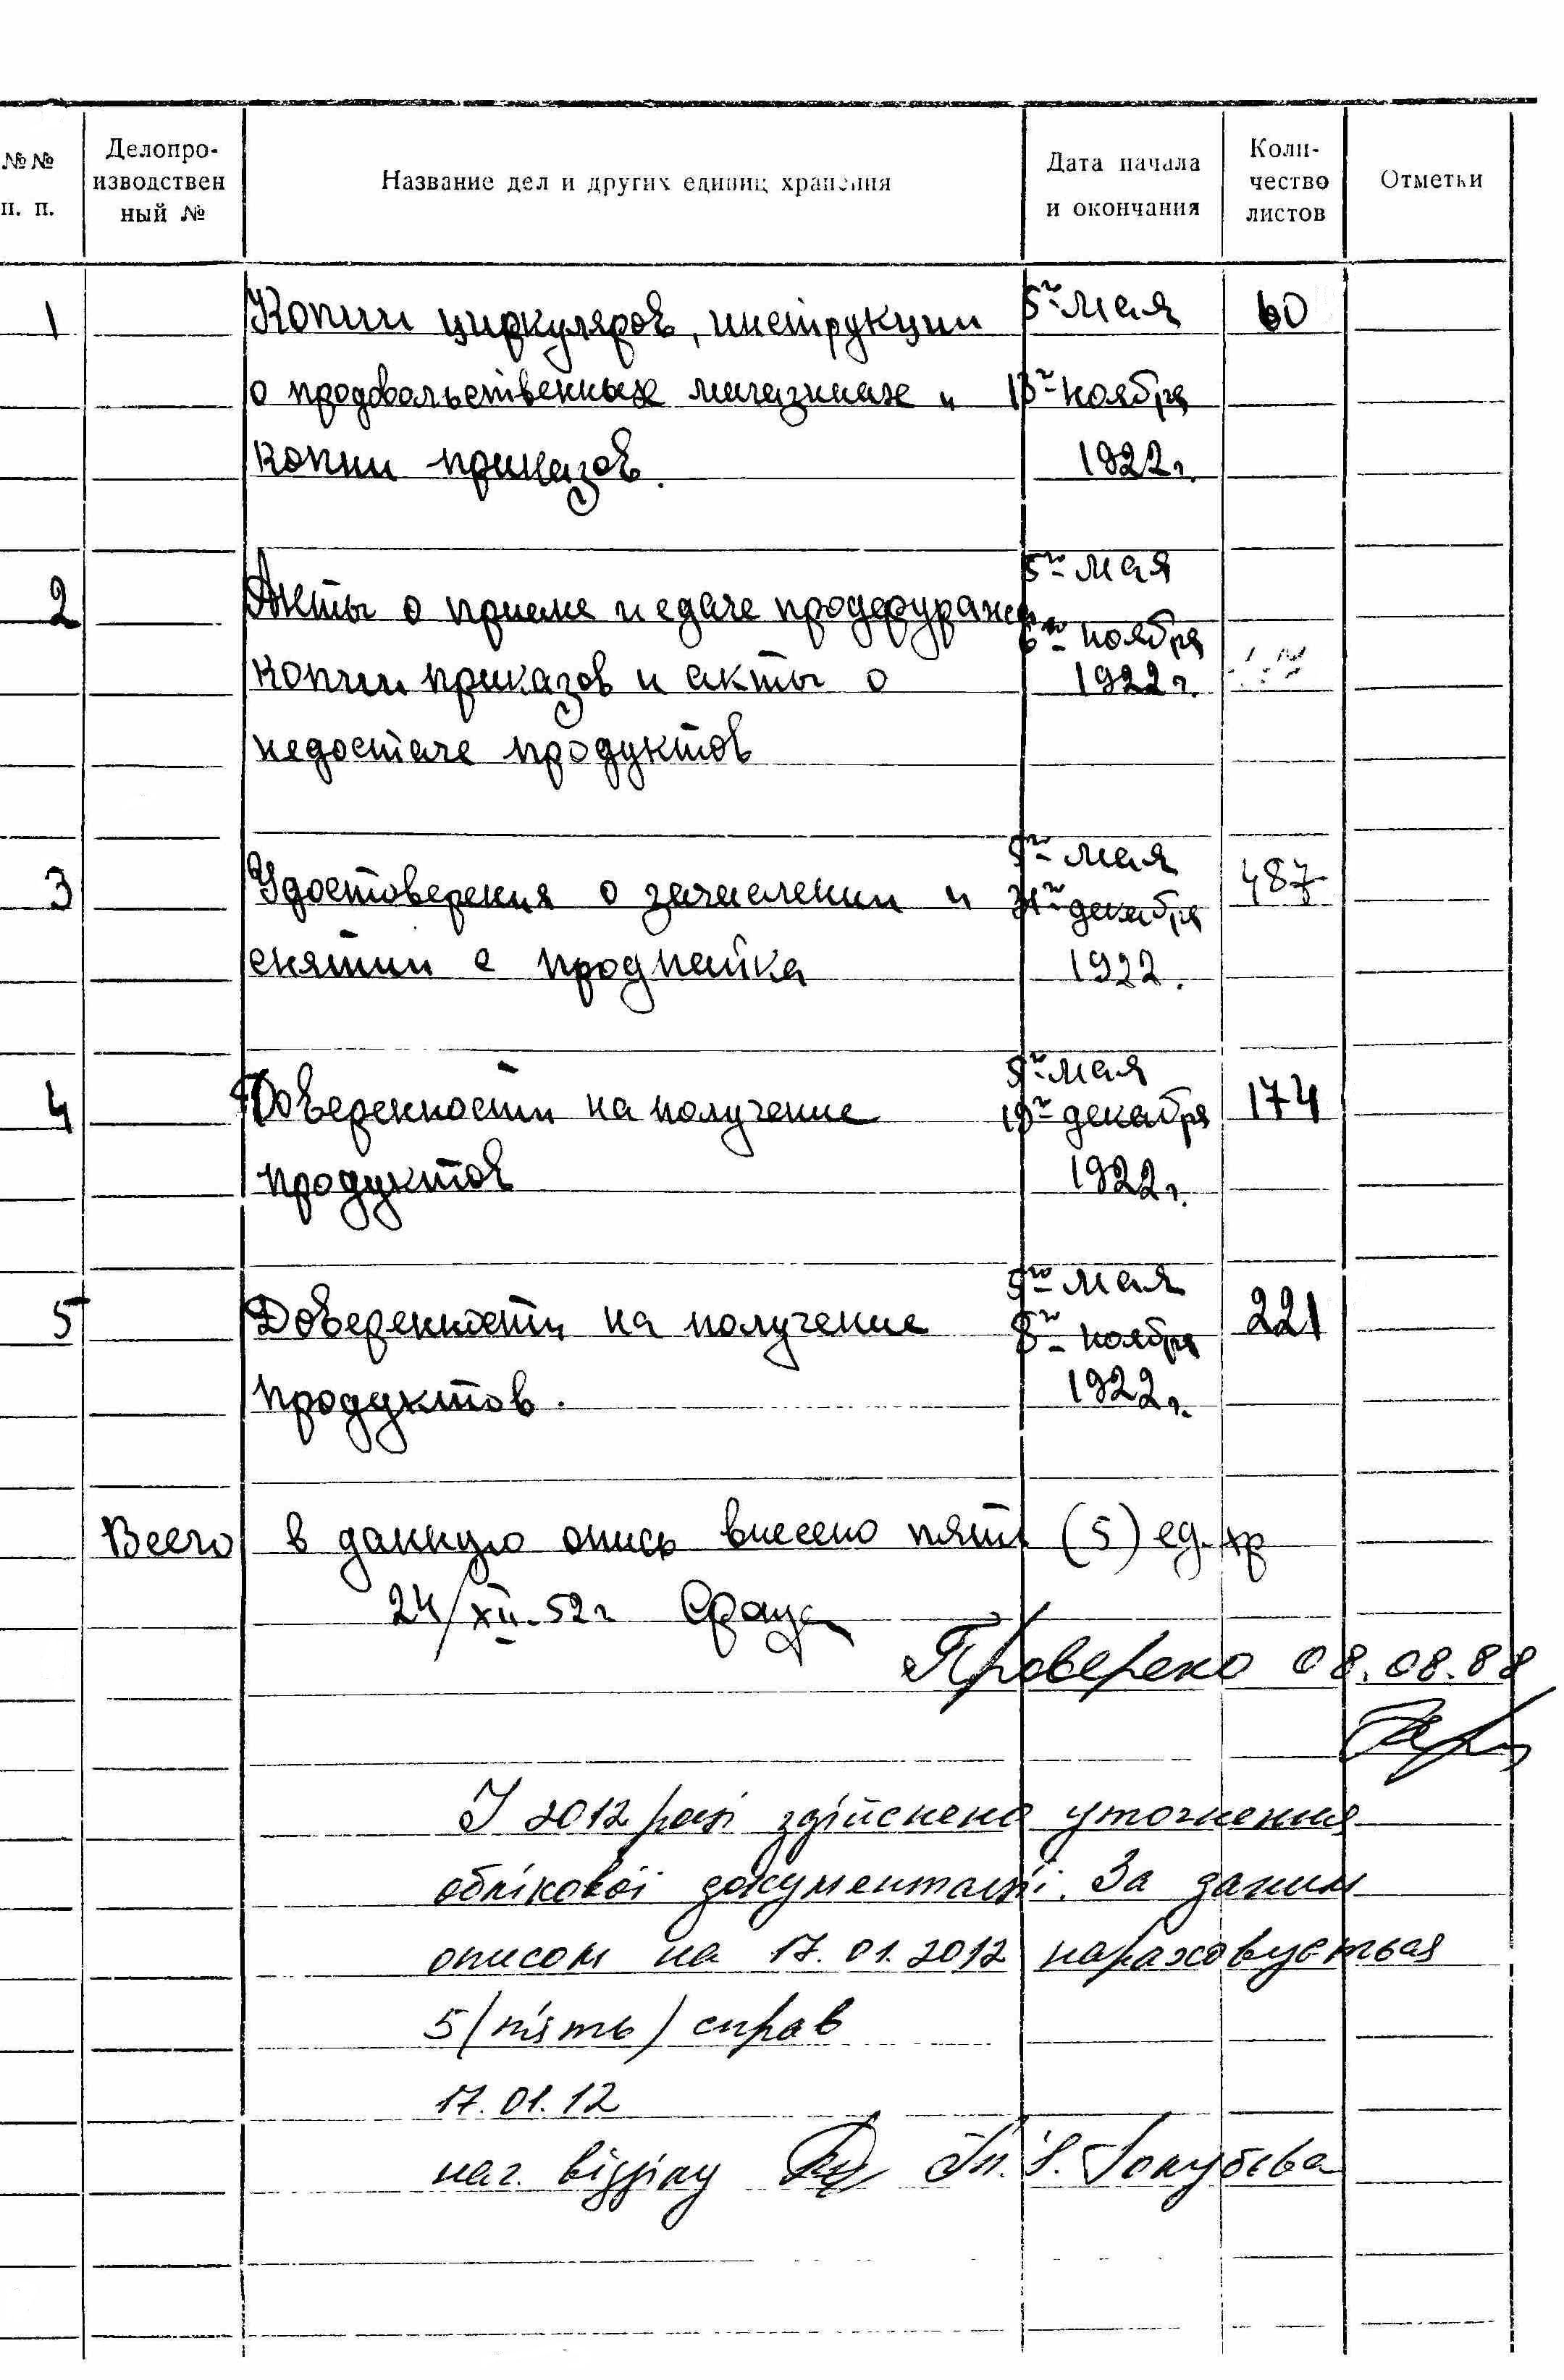 №№ п. п. Делопро-изводствен ный № Название дел и других единиц хранения Дата начала и окончания Коли-чество листов Отметки
1 Копии циркуляров, инструкции 5го мая 60
о продовольственных магазинах и 13го ноября
копии приказов. 1922 г.
5го мая
2 Акты о приеме и сдаче продфуража
6го ноября
копии приказов и акты о 1922 г.
недостаче продуктов
5го мая
3 Удостоверения о зачислении и 31го декабря 487
снятии с продпайка 1922.
5го мая
4 Доверенности на получение 19го декабря 174
продуктов 1922 г.
5го мая
5 Доверенности на получение 8го ноября 221
продуктов. 1922 г.
Всего в данную опись внесено пять (5) ед. хр
24/XII-52 г
Проверено 08.08.88
У 2012 році здійснено уточнення
облікової документації. За даним
описом на 17.01.2012 нараховується
5 (п'ять) справ
17.01.12
нач. відділу Голубєва